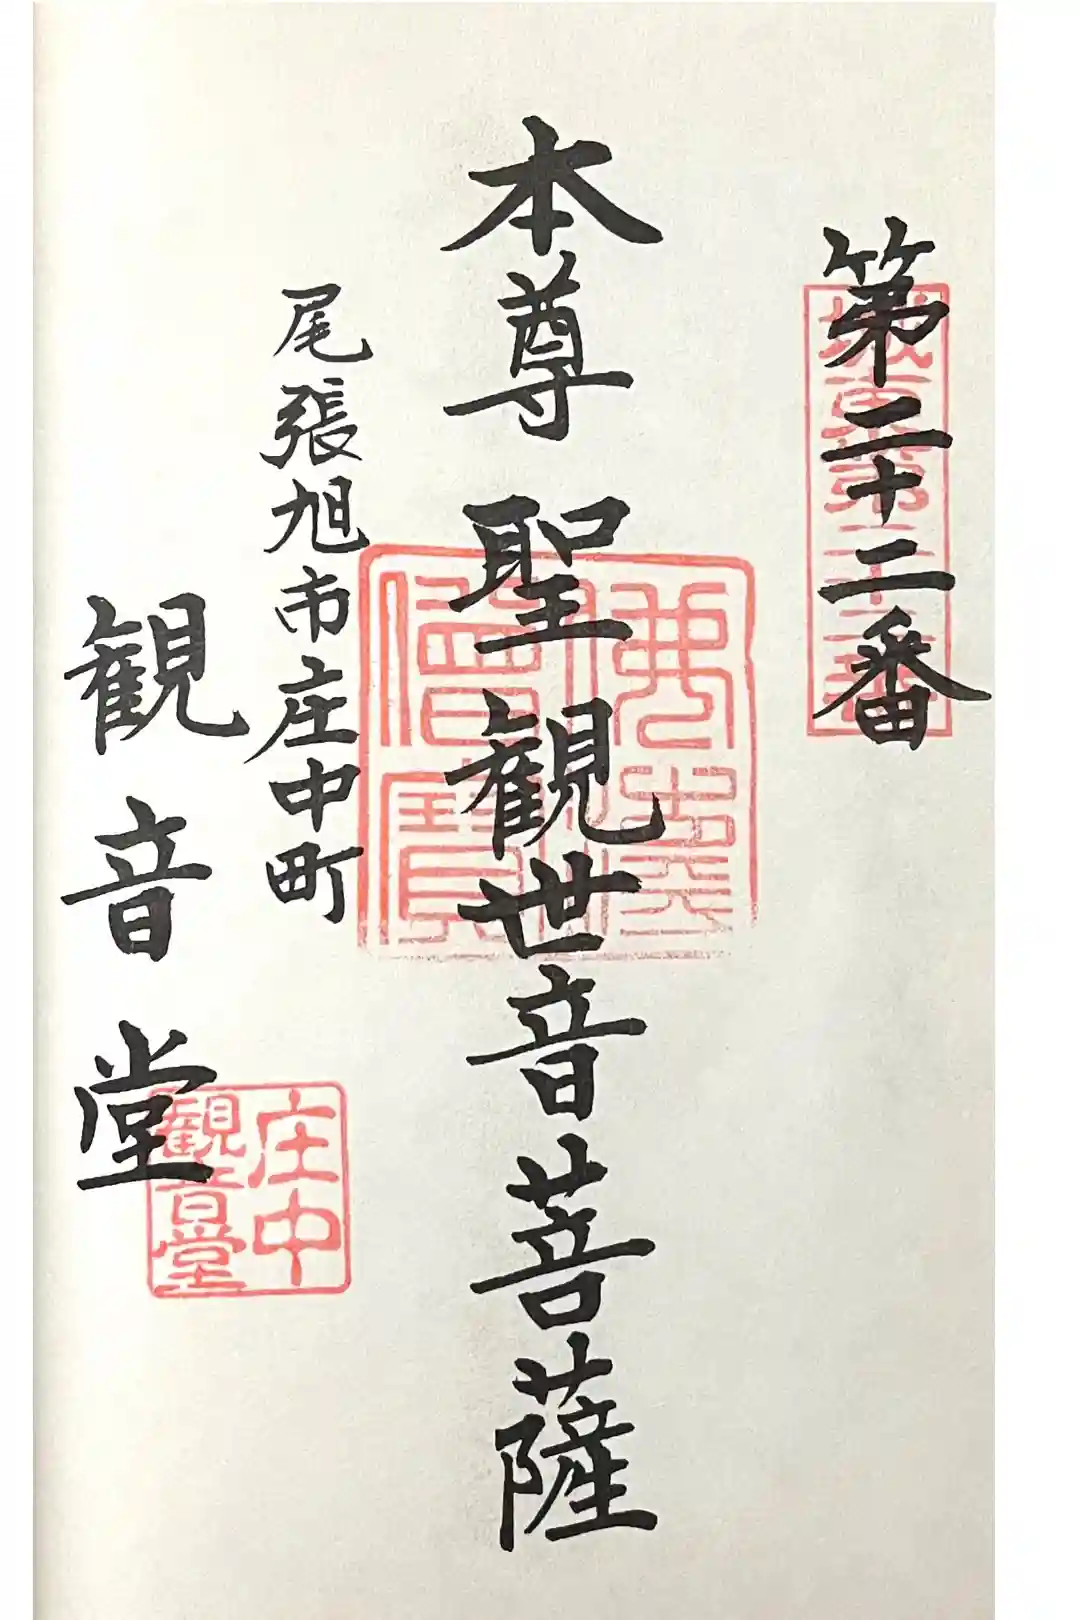 第二十二番
城東第二十二番
本尊聖観世音菩薩
佛法僧寶
尾張旭市庄中町
観音堂
庄中
観音堂